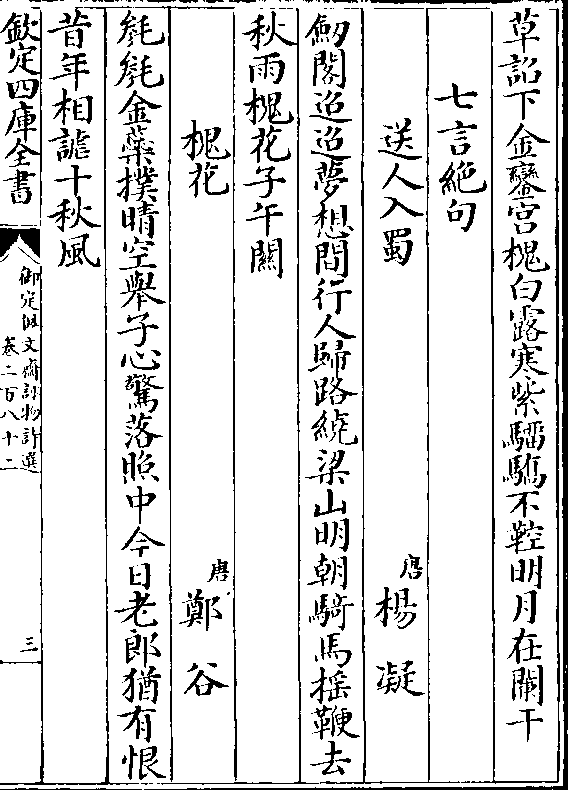 草詔下金鑾宮槐白露寒紫騮驕不鞚明月在闌干
七言絕句
送人入蜀 唐 楊凝
劒閣迢迢夢想間行人歸路繞梁山明朝騎馬揺鞭去
秋雨槐花子午關
槐花 唐 鄭谷
毿毿金蘂撲晴空舉子心驚落照中今日老郎猶有恨
昔年相謔十秋風
欽定四庫全書
御定佩文齋詠物詩選
卷二百八十二
三